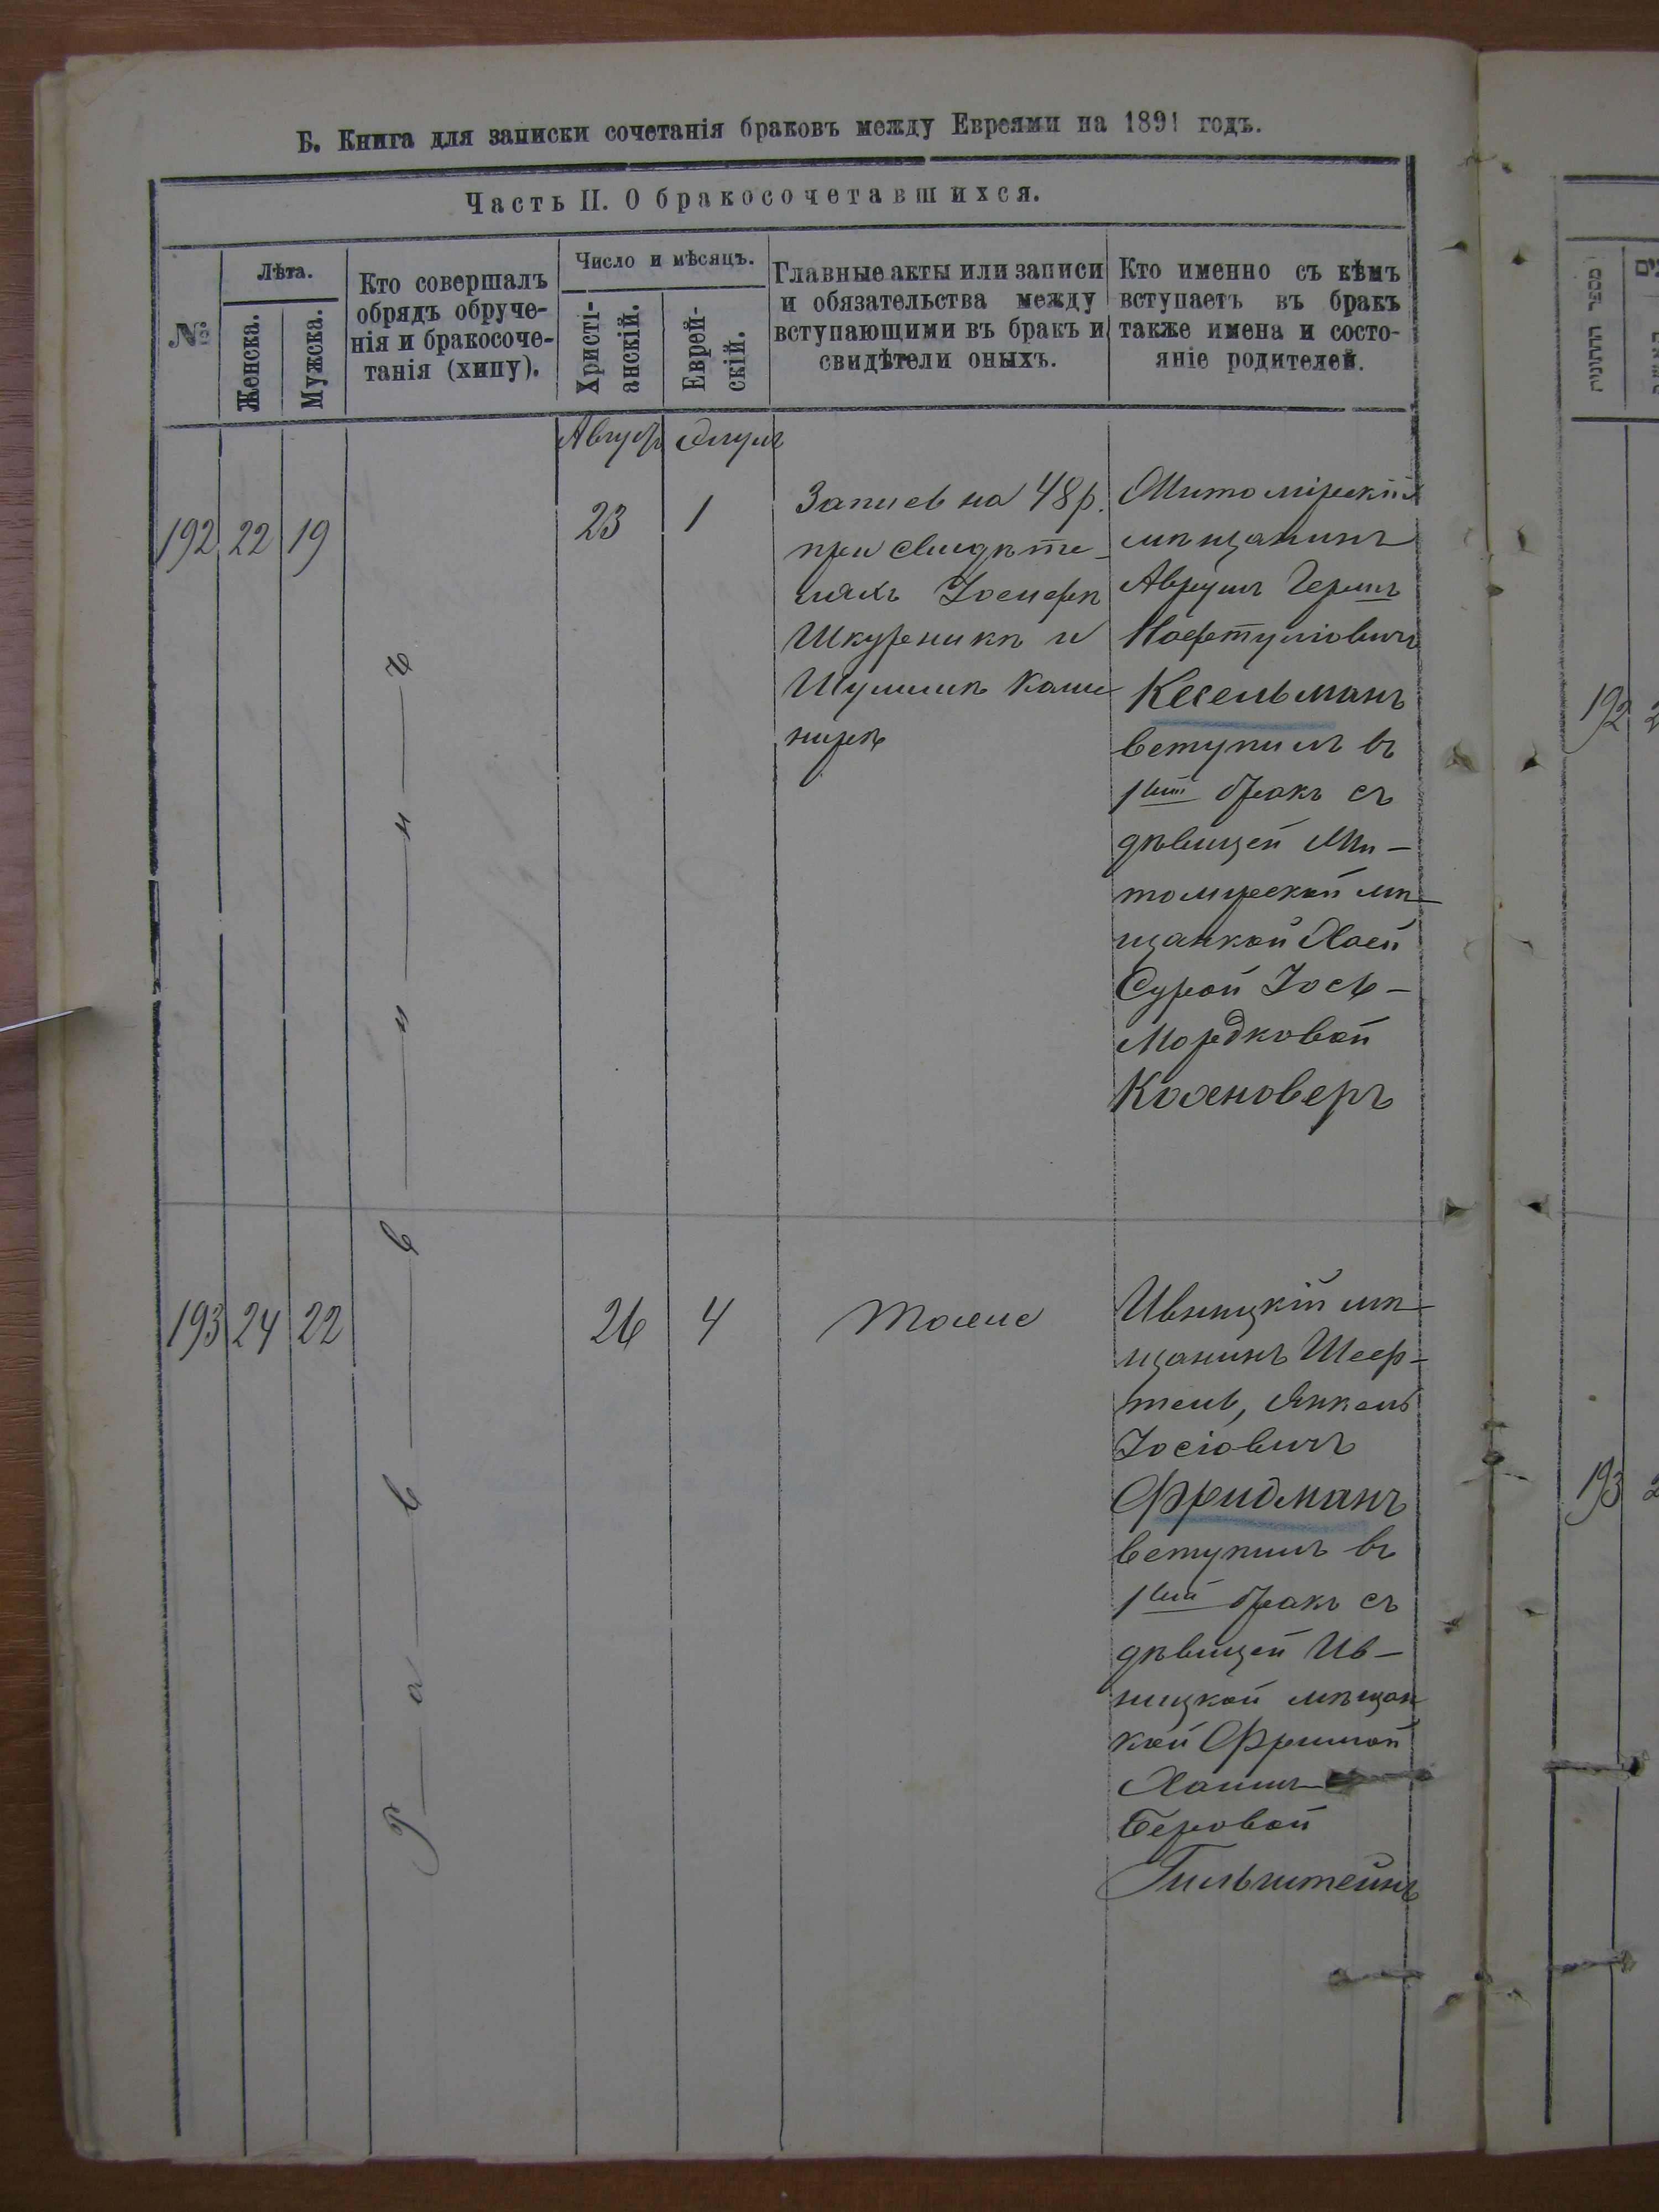 Б. Книга для записки сочетанія браковъ между Евреями на 1891 годъ.
Часть II. О бракосочетавшихся.
№
Лѣта.
Женска.
Мужска.
Кто совершалъ
обрядъ обруче-
нія и бракосоче-
танія (хипу).
Число и мѣсяцъ.
Христі-
анскій.
Еврей-
скій.
Главные акты или записи
и обязательства между
вступающими въ бракъ и
свидѣтели оныхъ.
Кто именно съ кѣмъ
вступаетъ въ бракъ
также имена и состо-
яніе родителей.
Августъ Элулъ
192 22 19
23 1
Запись на 48 р.
при свидѣте-
ляхъ Іосифѣ
Шкурникѣ и
Шулимѣ Каш
нирѣ
Житомірскій
мѣщанинъ
Аврумъ Гершъ
Нафтуліовичъ
Кесельманъ
вступилъ въ
1ый бракъ съ
дѣвицей Жи-
томирской мѣ-
щанкой Хаей
Сурой Іось-
Мордковой
Кохноверъ
Раввинъ
193 24 22
26 4
Тоже
Ивницкій мѣ-
щанинъ Шееф-
тель, Янкель
Іосіовичъ
Фридманъ
вступилъ въ
1ый бракъ съ
дѣвицей Ив-
ницкой мѣщан
кой Фримой
Хаимъ
Беровой
Гильштейнъ
מספר החתונה
192
193